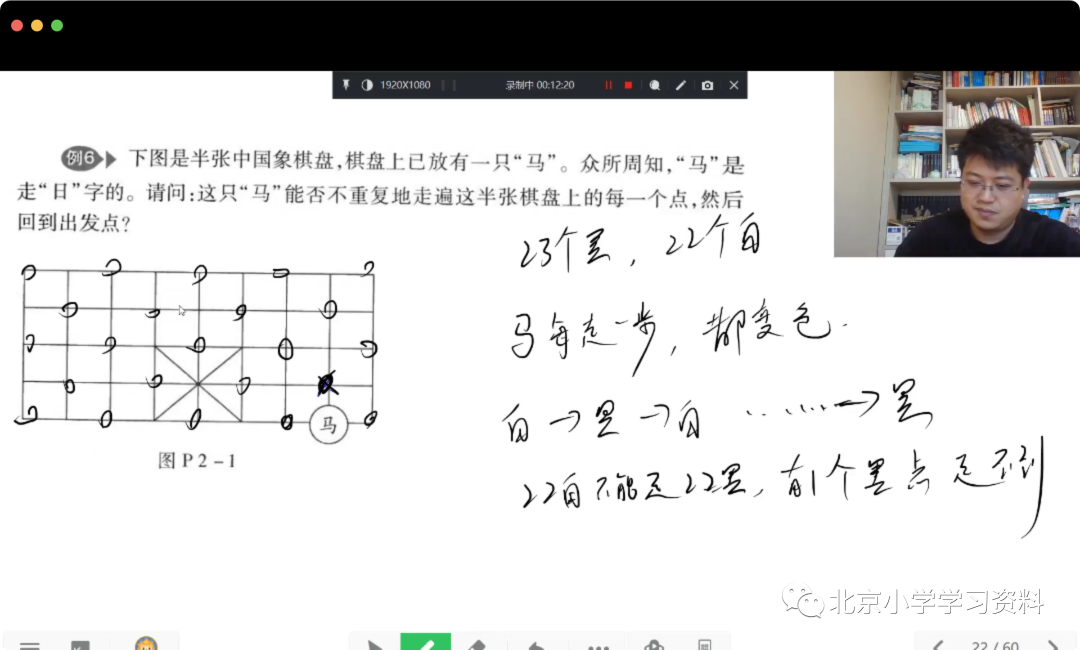 1920X1080 录制中 00:12:20
例6 下图是半张中国象棋盘,棋盘上已放有一只“马”。众所周知,“马”是
走“日”字的。请问:这只“马”能否不重复地走遍这半张棋盘上的每一个点,然后
回到出发点?
23个黑,22个白
马每走一步,都变色.
白→黑→白……→黑
22白不能走22黑,有1个黑点走不到
马
图 P2-1
北京小学学习资料
22 / 60